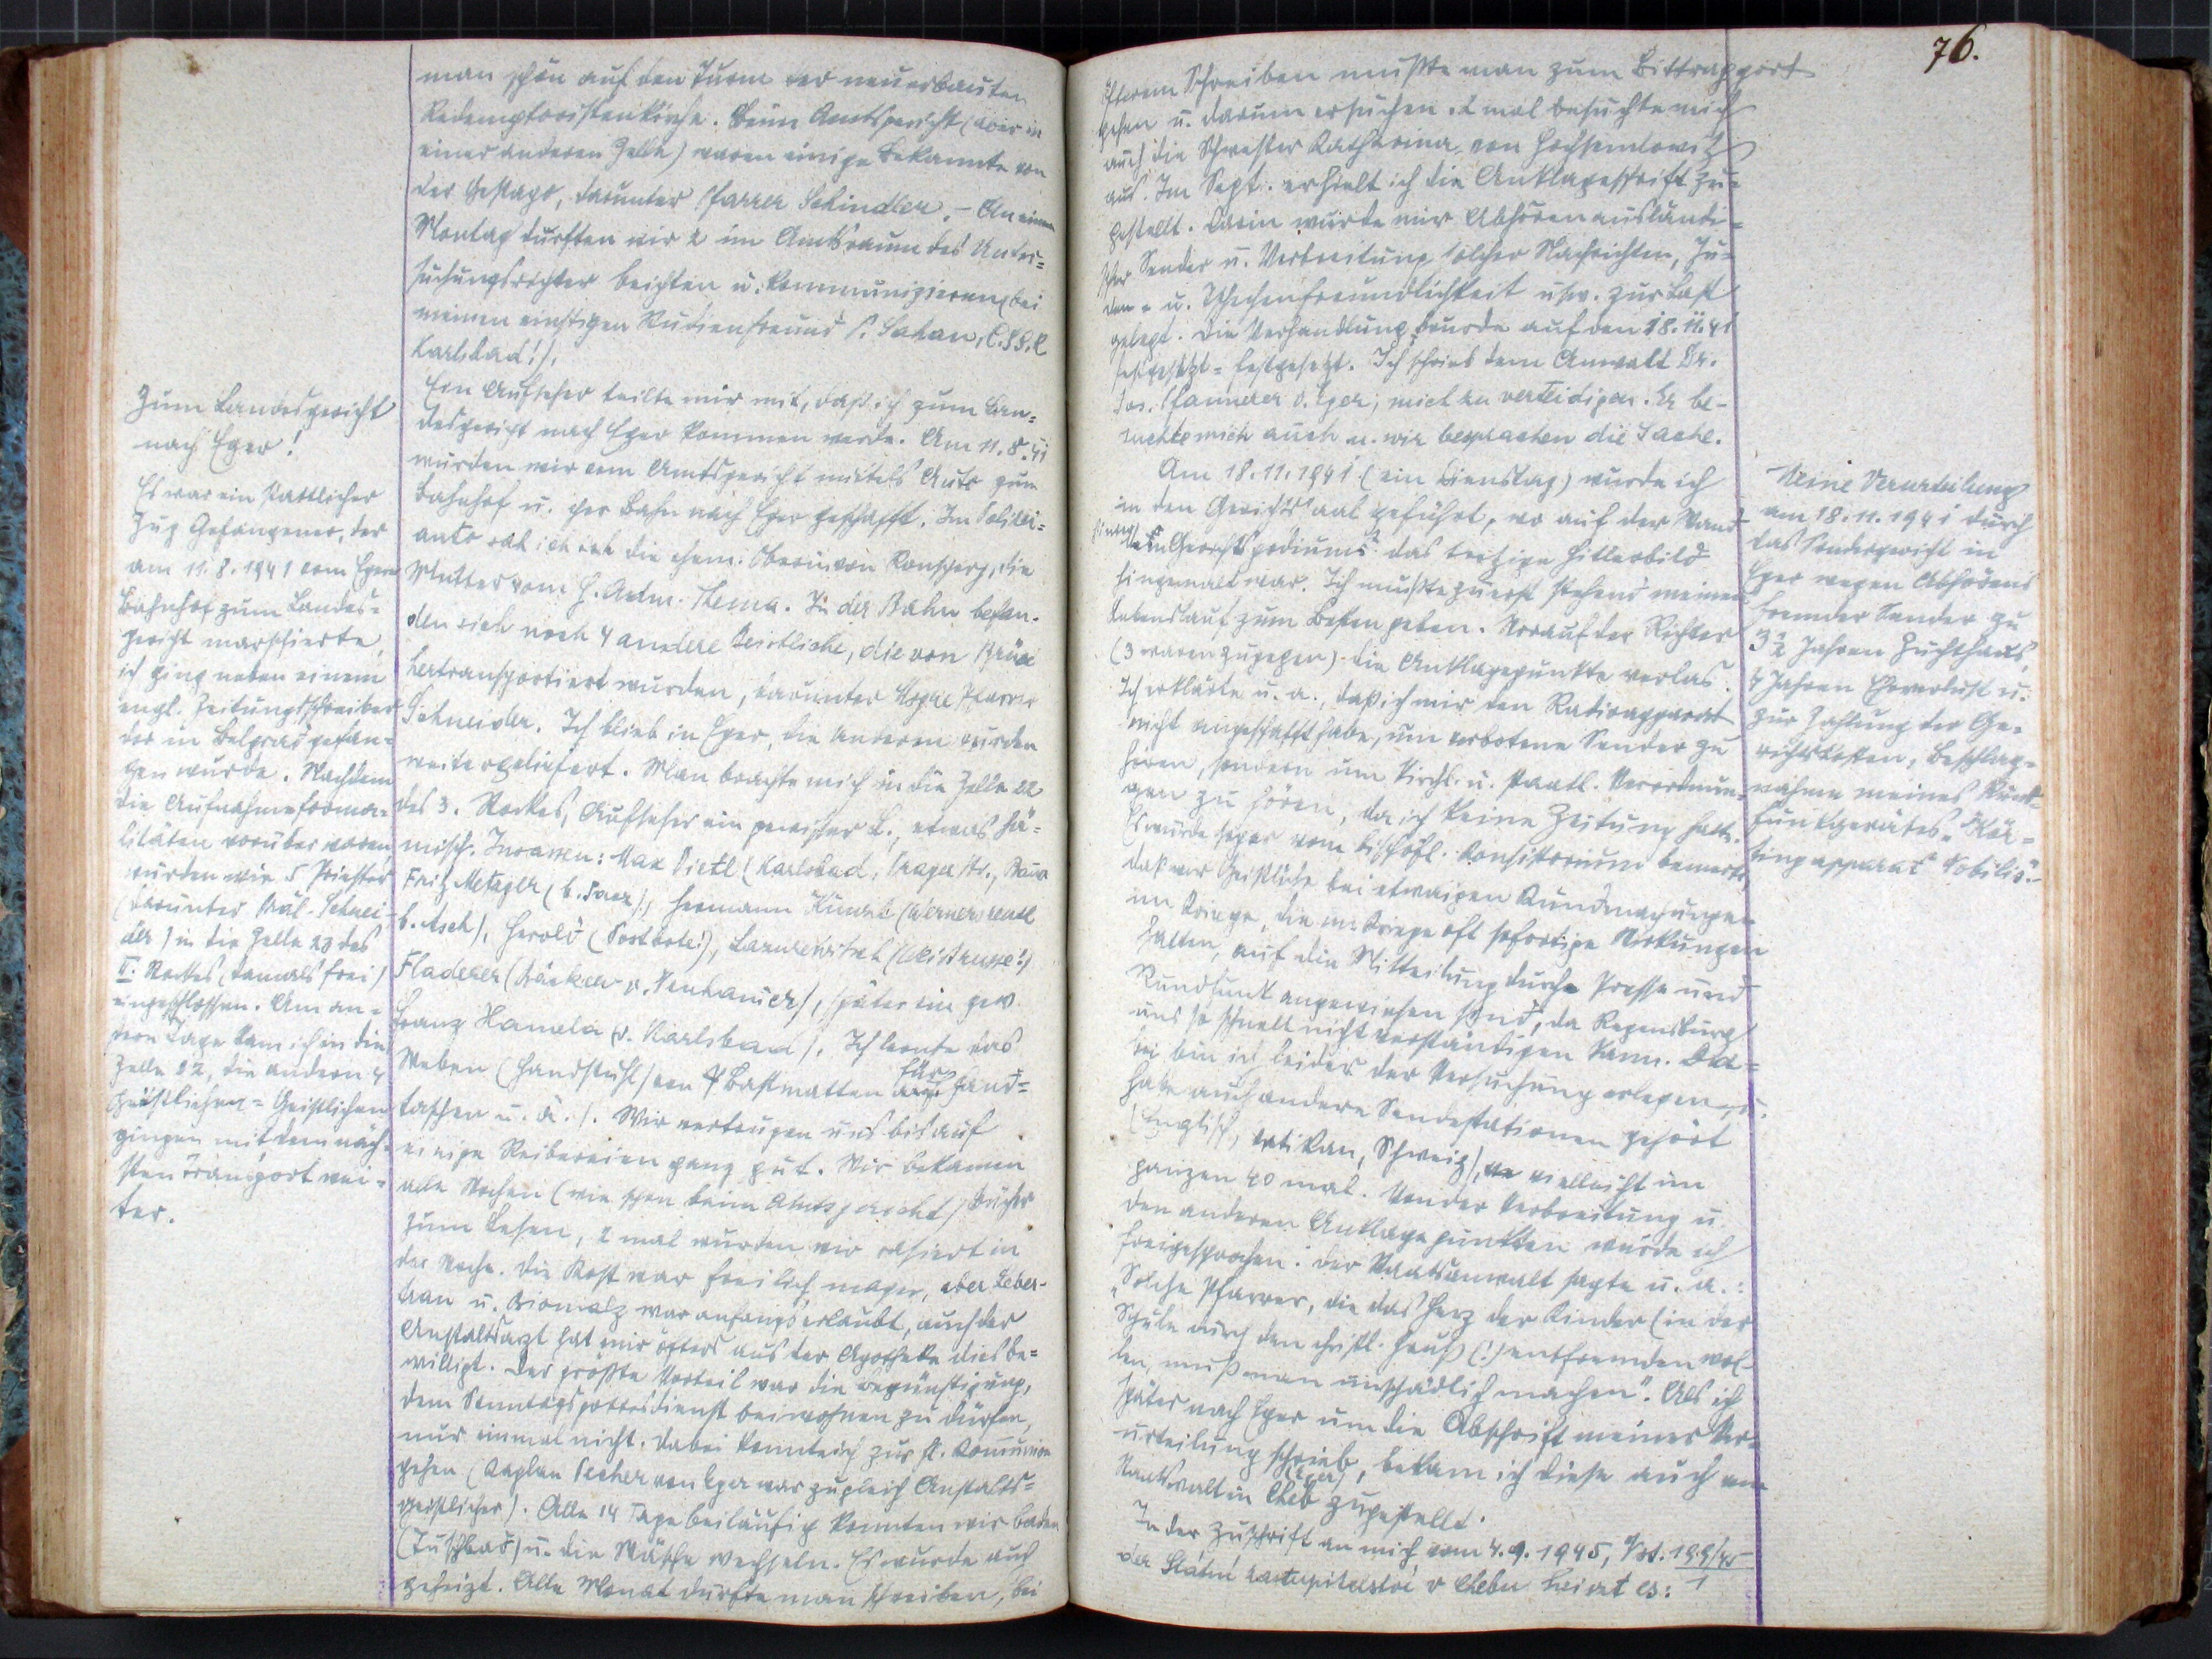 man schön auf den Turm der neuerbauten
Redemptoristenkirche. Beim Amtsgericht (aber in
einer anderen Zelle) waren einige Bekannte von
der Gestapo, darunter Pfarrer Schindler. - An einem
Montag durften wir 2 im Amtsraum des Unter=
suchungsrichter beichten u. kommunizieren (bei
meinem einstigen Studienfreund P. Sahan, C.SS.R
Karlsbad!).
Ein Aufseher teilte mir mit, daß ich zum Lan=
desgericht nach Eger kommen werde. Am 11.8.41
wurden wir vom Amtsgericht mittels Auto zum
Bahnhof u. per Bahn nach Eger geschafft. Im Polizei=
auto sah ich die ehem. Oberin von Ronsperg, die
Mutter vom H. Adm. Thema. In der Bahn befan-
den sich noch 4 andere Geistliche, die von Brüx
hertransportiert wurden, darunter Msgre Pfarrer
Schneider. Ich blieb in Eger, die anderen wurden
weitergeliefert. Man brachte mich in die Zelle 22
des 3. Stockes, Aufseher ein gewisser L., etwas hä=
misch. Insassen: Max Dietl (Karlsbad, Prager Str.,
Fritz Metzger (b. Saaz), Hermann Künzel (Wernersreuth
b. Asch), Herold (Postbote!), (Weißrusse!)
Fladerer (Bäcker v. Neuhauser), später ein gew.
Franz Hamela (v. Karlsbad). Ich lernte das
Weben (Handstuhl) von Bastmatten für Hand=
taschen u. ä.). Wir vertrugen uns bis auf
einige Reibereien ganz gut. Wir bekamen
alle Wochen (wie schon beim Amtsgericht) Bücher
zum Lesen, 2 mal wurden wir rasiert in
der Woche. Die Kost war freilich mager, aber Leber-
tran u. Biomalz war anfangs erlaubt, auch der
Anstaltsarzt hat mir öfters aus der Apotheke dies be=
willigt. Der größte Vorteil war die Begünstigung,
dem Sonntagsgottesdienst beiwohnen zu dürfen,
nur einmal nicht. Dabei konnte ich zur hl. Kommunion
gehen (Kaplan Pecher von Eger war zugleich Anstalts=
geistlicher). Alle 14 Tage beiläufig konnten wir baden
(Tuschbad) u. die Wäsche wechseln. Es wurde auch
geheizt. Alle Monat durfte man schreiben, bei
Zum Landesgericht
nach Eger!
Es war ein stattlicher
Zug Gefangener, der
am 11.8.1941 vom Egerer
Bahnhof zum Landes=
gericht marschierte,
ich ging neben einem
engl. Zeitungsschreiber
der in Belgrad gefan=
gen wurde. Nachdem
die Aufnahmeforma=
litäten vorüber waren
wurden wir 5 Priester
(darunter Präl. Schnei-
der) in die Zelle 23 des
II. Stockes (damals frei)
eingeschlossen. Am an=
dern Tage kam ich in die
Zelle 22, die andern 4
Geistlichen = Geistlichen
gingen mit dem näch-
sten Transport wei=
ter.
76.
öfterem Schreiben mußte man zum Bittrapport
gehen u. darum ersuchen. 2 mal besuchte mich
auch die Schwester Katharina von Hochsemlowitz
aus. Im Sept. erhielt ich die Anklageschrift zu=
gestellt. Darin wurde mir Abhören ausländi=
scher Sender u. Verbreitung solcher Nachrichten, Ju=
den= u. Tschechenfreundlichkeit usw. zur Last
gelegt. Die Verhandlung wurde auf den 18.11.41
festgesetzt = festgesetzt. Ich schrieb dem Anwalt Dr.
Jos. Pfannerer v. Eger, mich zu verteidigen. Er be-
suchte mich auch u. wir besprachen die Sache.
Am 18.11.1941 (ein Dienstag) wurde ich
in den Gerichtssaal geführt, wo auf der Wand
hinter dem Gerichtspodiums das trotzige Hitlerbild
hingemalt war. Ich mußte zuerst stehend meinen
Lebenslauf zum Besten geben. Worauf der Richter
(3 waren zugegen) die Anklagepunkte verlas.
Ich erklärte u. a., daß ich mir den Radioapparat
nicht angeschafft habe, um verbotene Sender zu
hören, sondern um kirchl. u. staatl. Verordnun=
gen zu hören, da ich keine Zeitung hatte.
Es wurde sogar vom bischöfl. Konsistorium bemerkt,
daß wir Geistliche bei etwaigen Kundmachungen
im Kriege, die im Kriege oft sofortige Wirkungen
hatten, auf die Mitteilung durch Presse und
Rundfunk angewiesen sind, da Regensburg
uns so schnell nicht verständigen kann. Da=
bei bin ich leider der Versuchung erlegen, u.
habe auch andere Sendestationen gehört
(Englisch, Vatikan, Schweiz), vielleicht im
ganzen 40 mal. Von der Verbreitung u.
den anderen Anklagepunkten wurde ich
freigesprochen. Der Staatsanwalt sagte u. a.:
"Solche Pfarrer, die das Herz der Kinder (in der
Schule durch den christl. Gruß (!) entfremden wol-
len, muß man unschädlich machen". Als ich
später nach Eger um die Abschrift meiner Ver=
urteilung schrieb, bekam ich diese auch vom
Staatsanwalt in Cheb (Eger) zugestellt.
In der Zuschrift an mich vom 4.9.1945,
der Státní zastupitelství v Chebu heisst es:
Meine Verurteilung
am 18.11.1941 durch
das Sondergericht in
Eger wegen Abhörens
fremder Sender zu
3½ Jahren Zuchthaus,
4 Jahren Ehrverlust u.
zur Zahlung der Ge=
richtskosten, Beschlag=
nahme meines Rund=
funkgerätes "Kör=
tingapparat Nobilis".